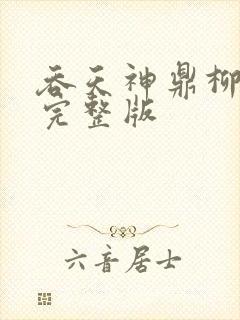 吞天神鼎柳
完整版
六音居士